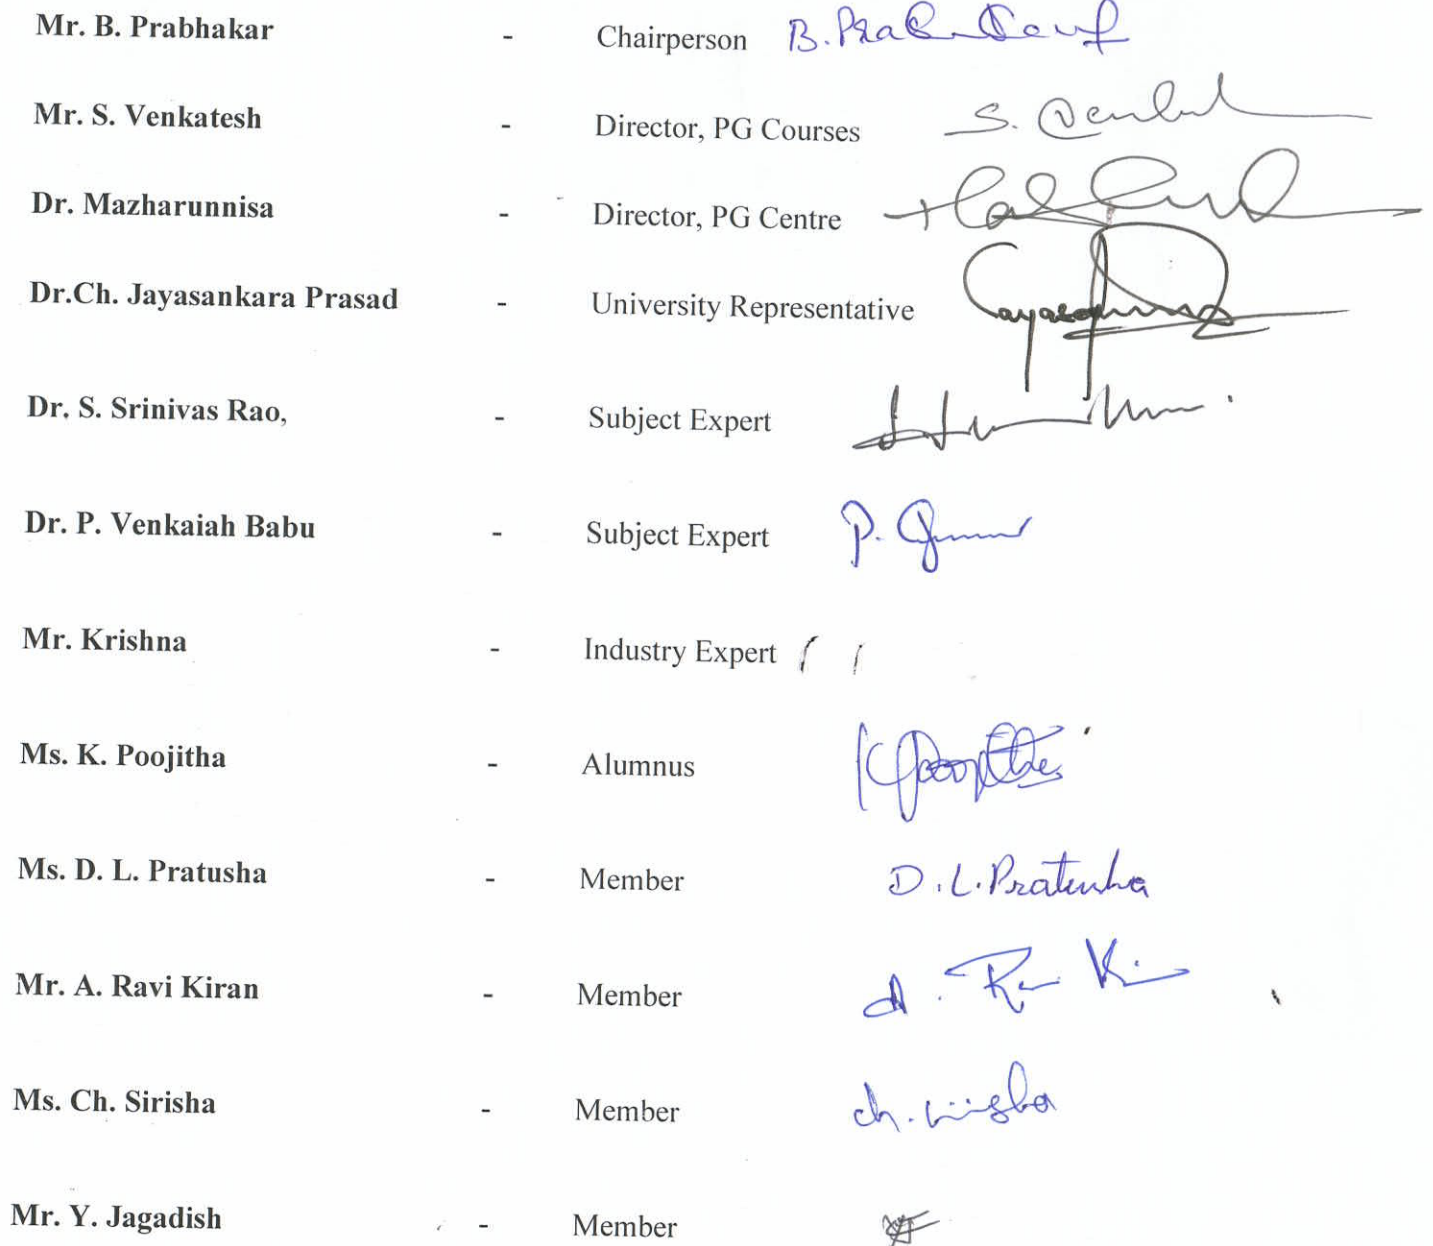 Mr. B. Prabhakar - Chairperson B.Prabhakar
Mr. S. Venkatesh - Director, PG Courses S. Venkat
Dr. Mazharunnisa - Director, PG Centre
Dr.Ch. Jayasankara Prasad - University Representative
Dr. S. Srinivas Rao, - Subject Expert
Dr. P. Venkaiah Babu - Subject Expert P.
Mr. Krishna - Industry Expert
Ms. K. Poojitha - Alumnus K Poojitha
Ms. D. L. Pratusha - Member D.L.Pratusha
Mr. A. Ravi Kiran - Member A. Ravi Ki
Ms. Ch. Sirisha - Member ch. sirisha
Mr. Y. Jagadish - Member